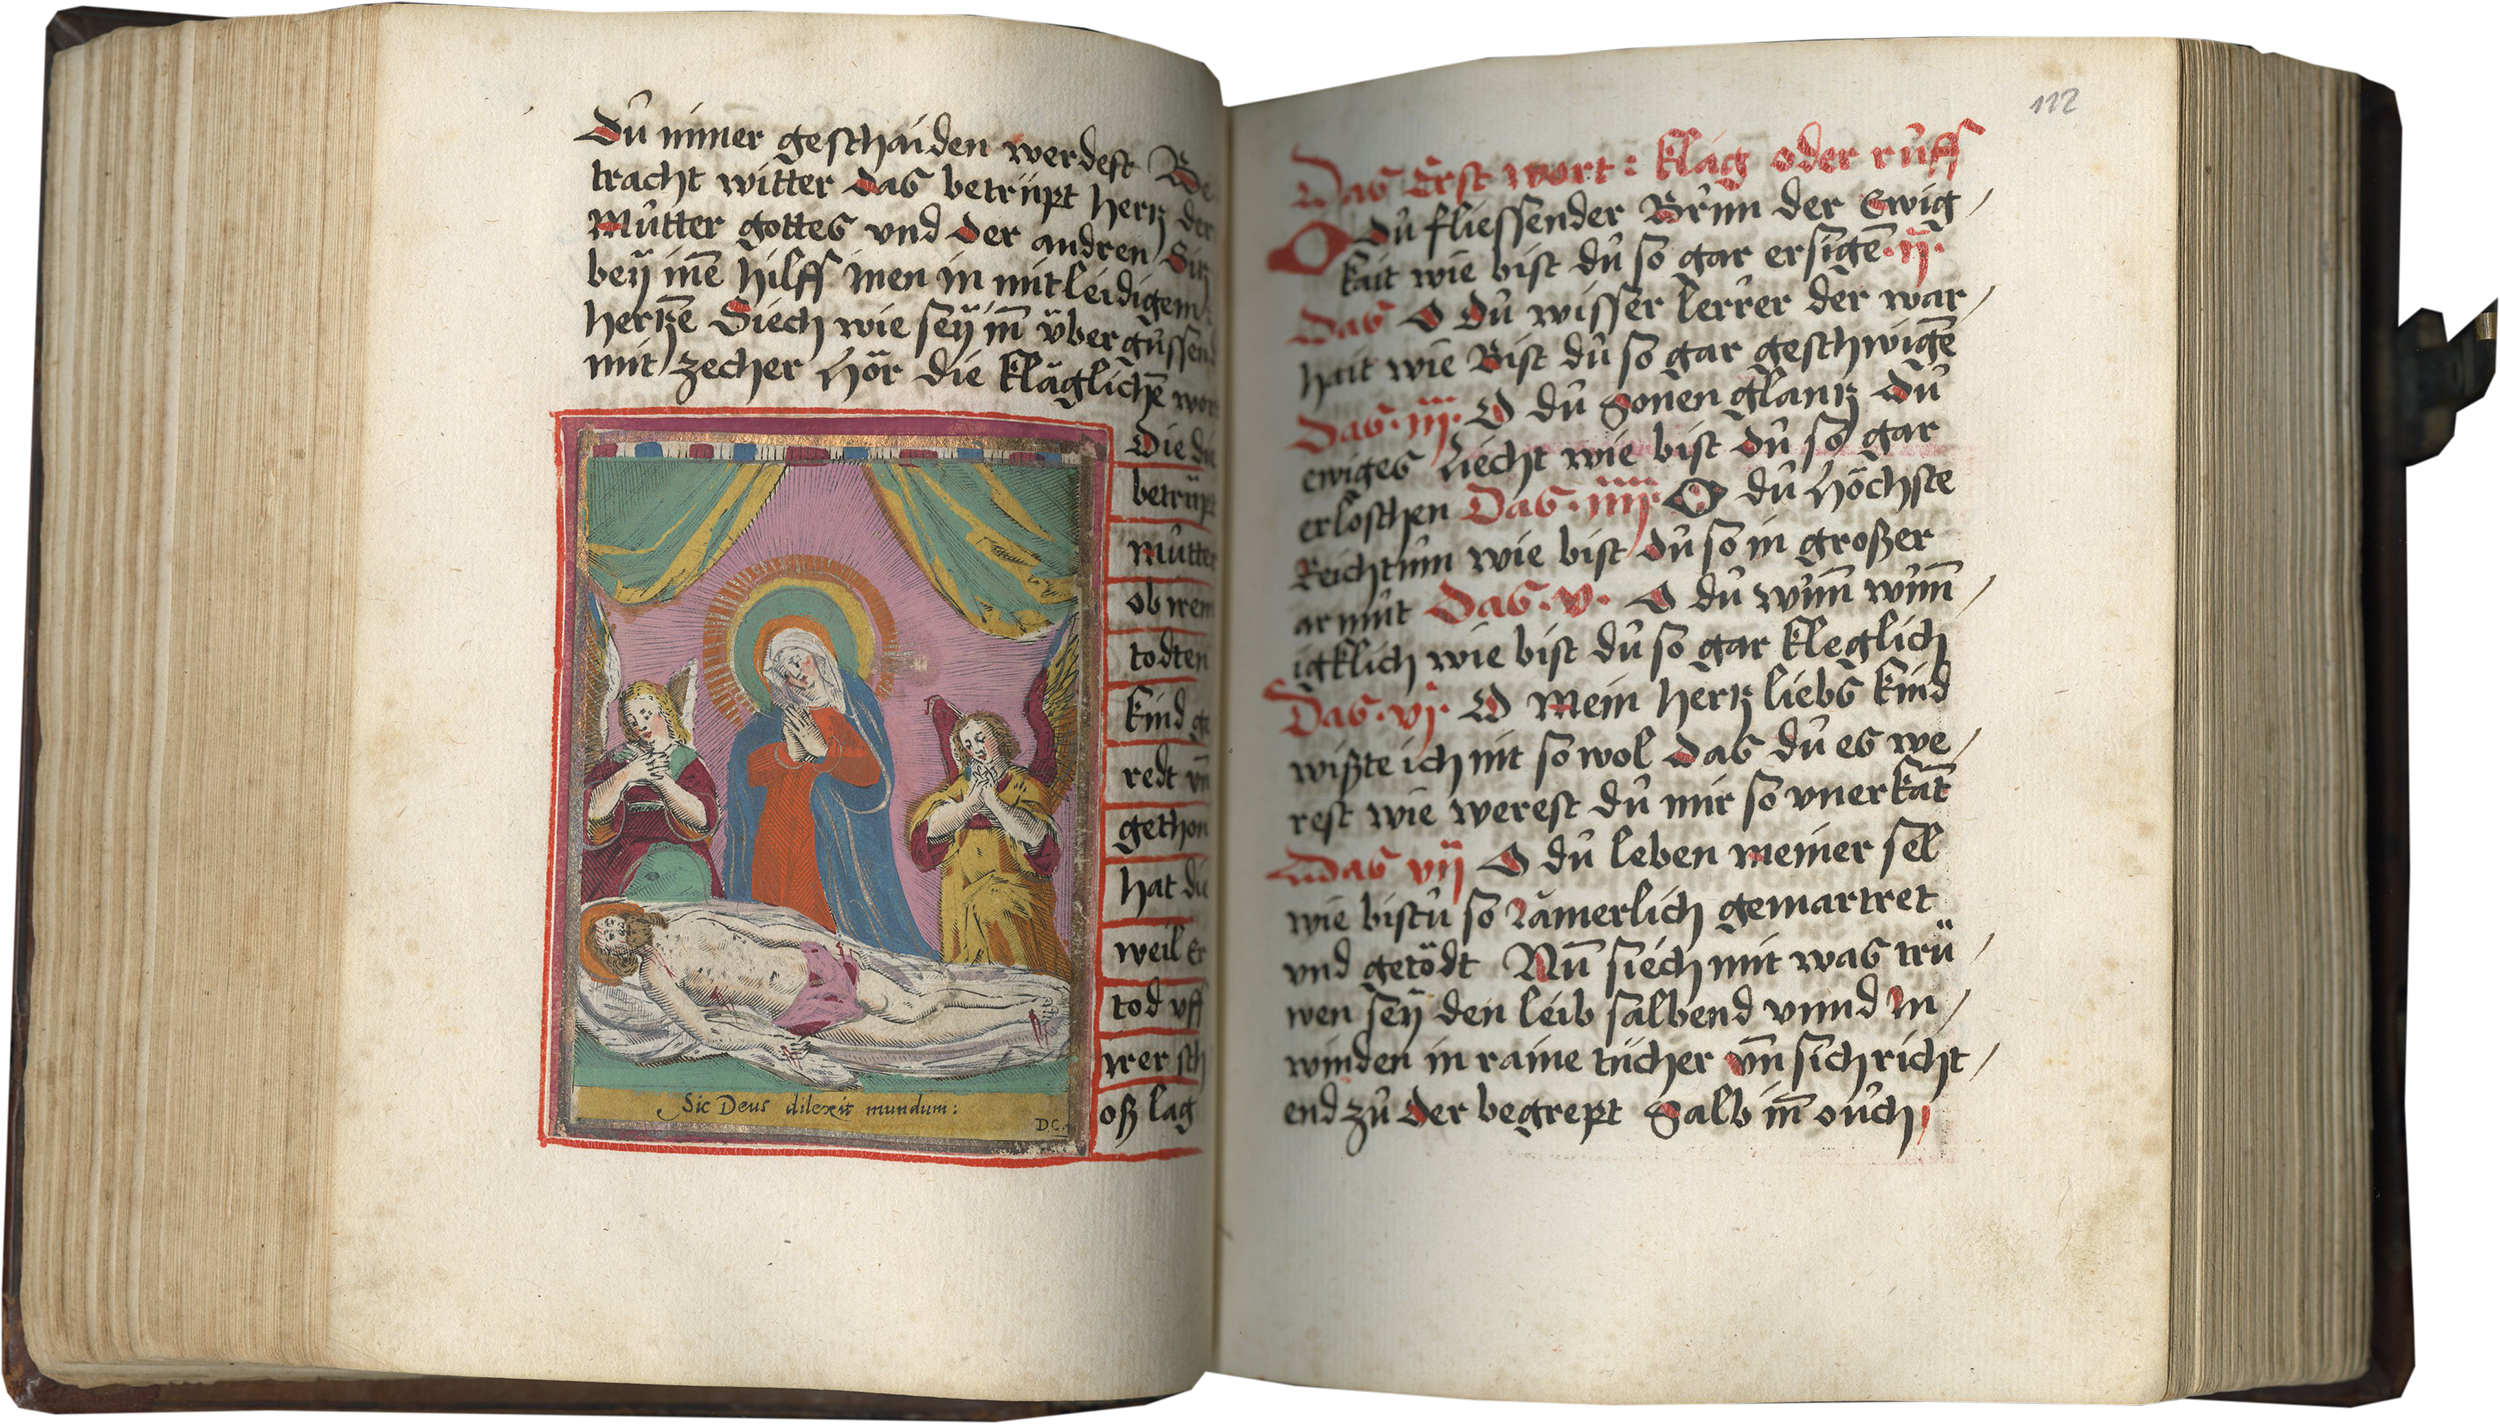 dů nimer geschaiden werdest Be
tracht witter das betrüpt hertz der
Můtter gottes vnd der andren Sitz
bey inē hilff inen in mitleidigem
hertzē Siech wie sey im̄ über gůssend
mit zecher Hör die kläglichē wort
Die die
betrüpt
můtter
ob irem
todten
kind ge
redt vn̄
gethon
hat die
weil Er
tod vff
irer sch
oß lag
Sic Deus dilexit mundum:
D C.
112
Das Erst wort: klag oder růff
O dů fliessender Brůnn der Ewig/
kait wie bist dů so gar ersigē .ij.
Das O Dů wisser lerrer der war/
hait wie Bist dů so gar geschwigē
Das .iij. O dů Sonen glantz Dů
ewiges Liecht wie bist dů so gar
erloschen Das .iiij. O dů Höchste
Reichtům wie bist dů so in großer
armůt Das .v. O dů wům̄ wům̄/
igklich wie bist dů so gar kleglich
Das .vj. O Mein hertz liebs kind
wißte ich nit so wol das dů es we/
rest wie werest dů mir so vnerkāt
Das vij O dů leben meiner sel
wie bistů so Jämerlich gemartret
vnd getödt Nūn siech mit was trü/
wen sey den leib salbend vnnd In/
winden in raine tücher vn̄ sich richt/
end zů der begrept Salb im̄ oůch